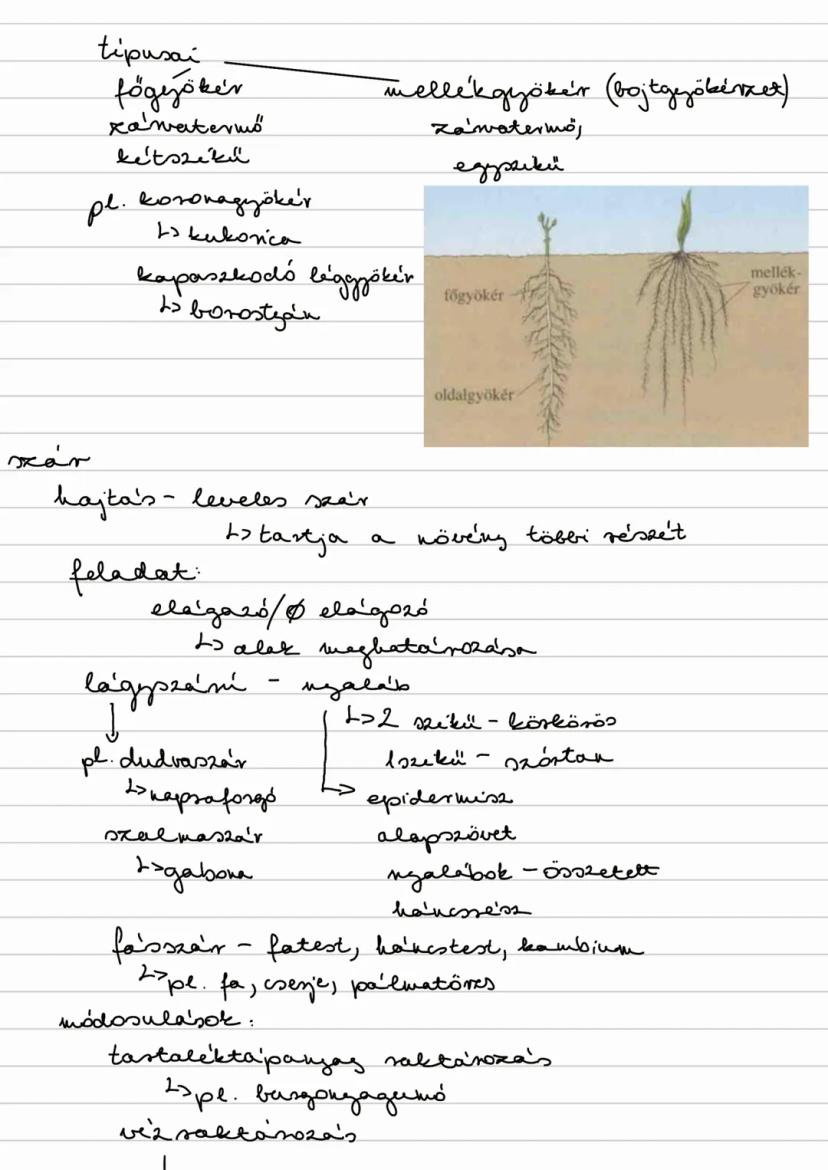 típusai
főgyökér mellékgyökér (bojtgyökérzet)
zárvatermő zárvatermő,
kétszikű egyszikű
pl. koronagyökér
↳ kukorica
kapaszkodó léggyökér
↳ borostyán
főgyökér
mellék-
gyökér
oldalgyökér
szár
hajtás - leveles szár
↳ tartja a növény többi részét
feladat:
elágazó/Ø elágozó
↳ alak meghatározása
lágyszárú - nyaláb
↓ ↳ 2 szikű - körkörös
pl. dudvaszár 1szikű - szórtan
↳ napraforgó ↳ epidermisz
szalmaszár alapszövet
↳ gabona nyalábok - összetett
háncsrész
fásszár - fatest, háncstest, kambium
↳ pl. fa, cserje, pálmatörzs
módosulások:
tartaléktápanyag raktározás
↳ pl. burgonyagumó
víz raktározás